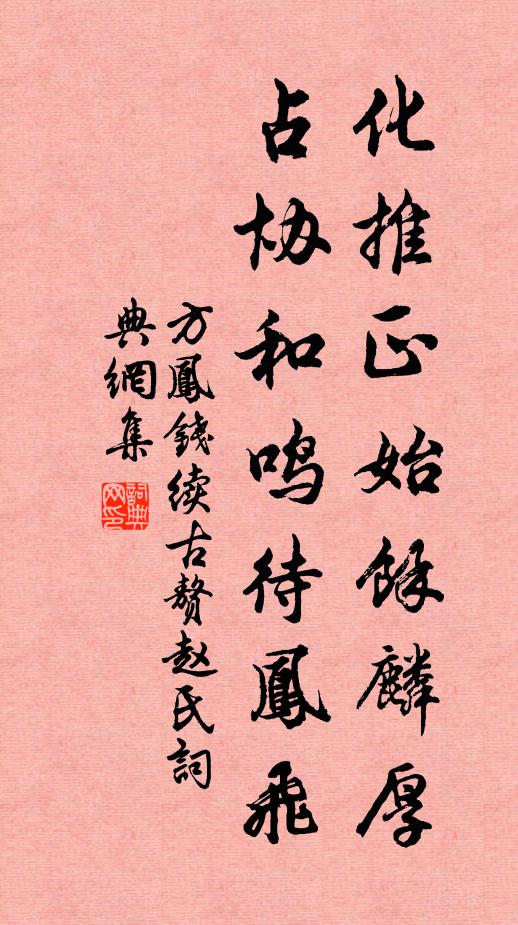 化推正始餘麟厚
占协和鸣待鳳飛
方鳳錢续古赘赵氏詞
典網集
詞典网印